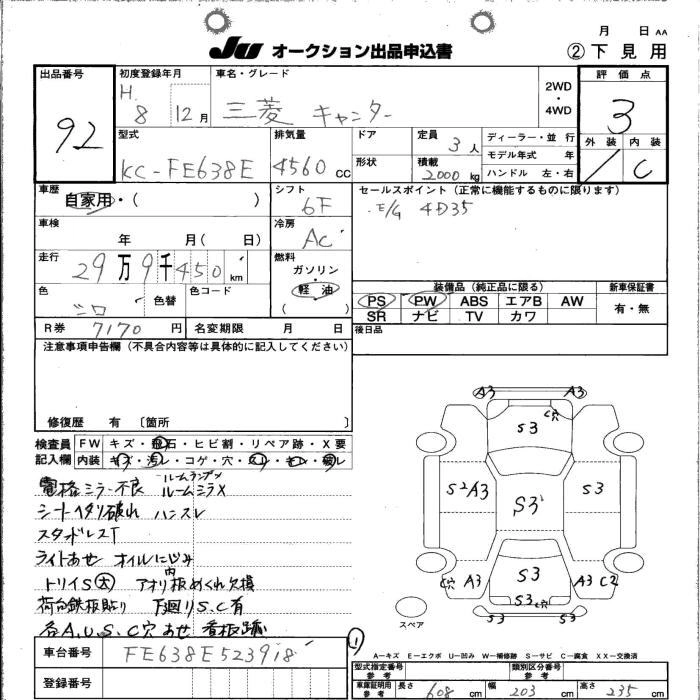 月 日 AA
JU オークション出品申込書 ②下見用
出品番号 92
初度登録年月 H. 8 12月
車名・グレード 三菱 キャンター
2WD・4WD
評価点 3
外装 内装
1 C
型式 KC-FE638E
排気量 4560 cc
ドア
形状
定員 3人
積載 2000 kg
ディーラー・並行
モデル年式 年
ハンドル 左・右
車歴 自家用・( )
シフト 6F
セールスポイント(正常に機能するものに限ります)
E/G 4D35
車検 年 月( 日)
冷房 AC
走行 29万9千450 km
燃料 ガソリン・軽油 ( )
色 シロ 色替 色コード
装備品(純正品に限る) 新車保証書
PS PW ABS エアB AW 有・無
SR ナビ TV カワ
R券 7170円 名変期限 月 日
後日品
注意事項申告欄(不具合内容等は具体的に記入してください)
修復歴 有 〔箇所 〕
検査員記入欄
FW キズ・飛石・ヒビ割・リペア跡・X要
内装 キズ・汚レ・コゲ・穴・スレ・キレ・破レ
電格ミラー不良 ルームランプX
ルームミラX
シートヘタリ破れ ハンスレ
スタッドレスT
ライトあせ オイルにじみ
トリイS大 アオリ内板めくれ欠損
荷台鉄板貼り 下廻りS.C有
各A.U.S.C穴 あせ 看板跡
車台番号 FE638E523918
登録番号
A3 A3
C穴
S3
S2A3 S3 S3
C穴 A3 S3 A3 C2
S3 C穴
S3 S3
スペア
①
A－キズ E－エクボ U－凹み W－補修跡 S－サビ C－腐食 XX－交換済
型式指定番号 参考 類別区分番号 参考
車庫証明用 参考 長さ 608 cm 幅 203 cm 高さ 235 cm